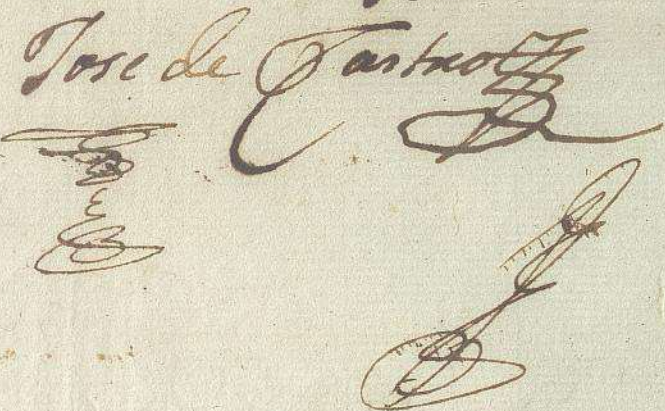 Jose de Castro